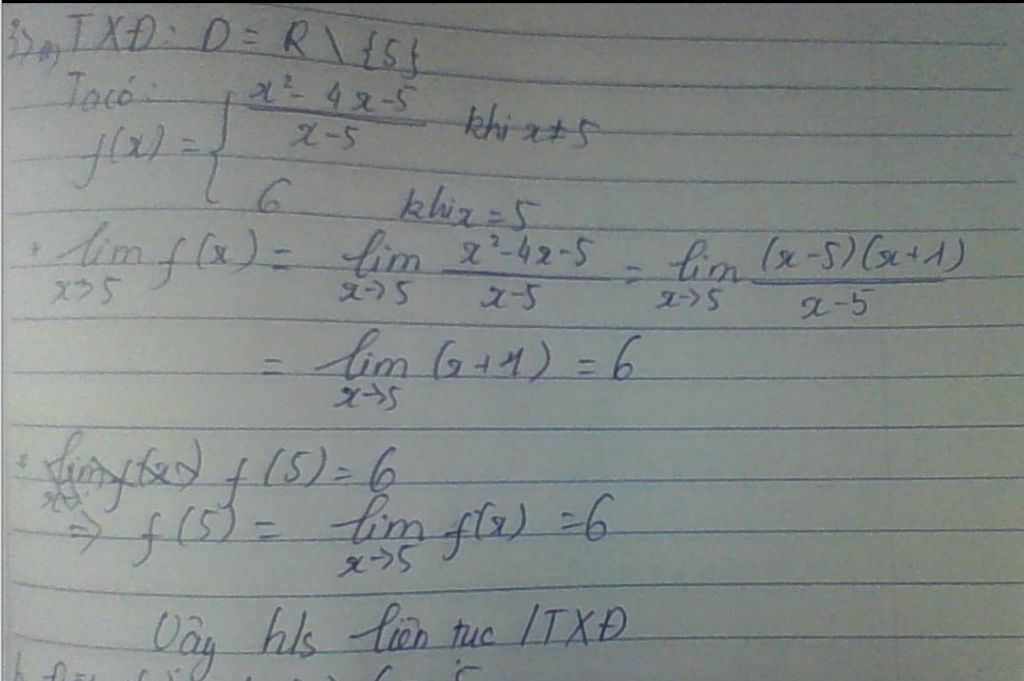 TXĐ: D = R \ {5}
Ta có:
f(x) = { x² - 4x - 5 / x - 5 khi x ≠ 5
6 khi x = 5
+ lim x→5 f(x) = lim x→5 x² - 4x - 5 / x - 5 = lim x→5 (x - 5)(x + 1) / x - 5
= lim x→5 (x + 1) = 6
+ f(5) = 6
⇒ f(5) = lim x→5 f(x) = 6
Vậy h/s liên tục /TXĐ